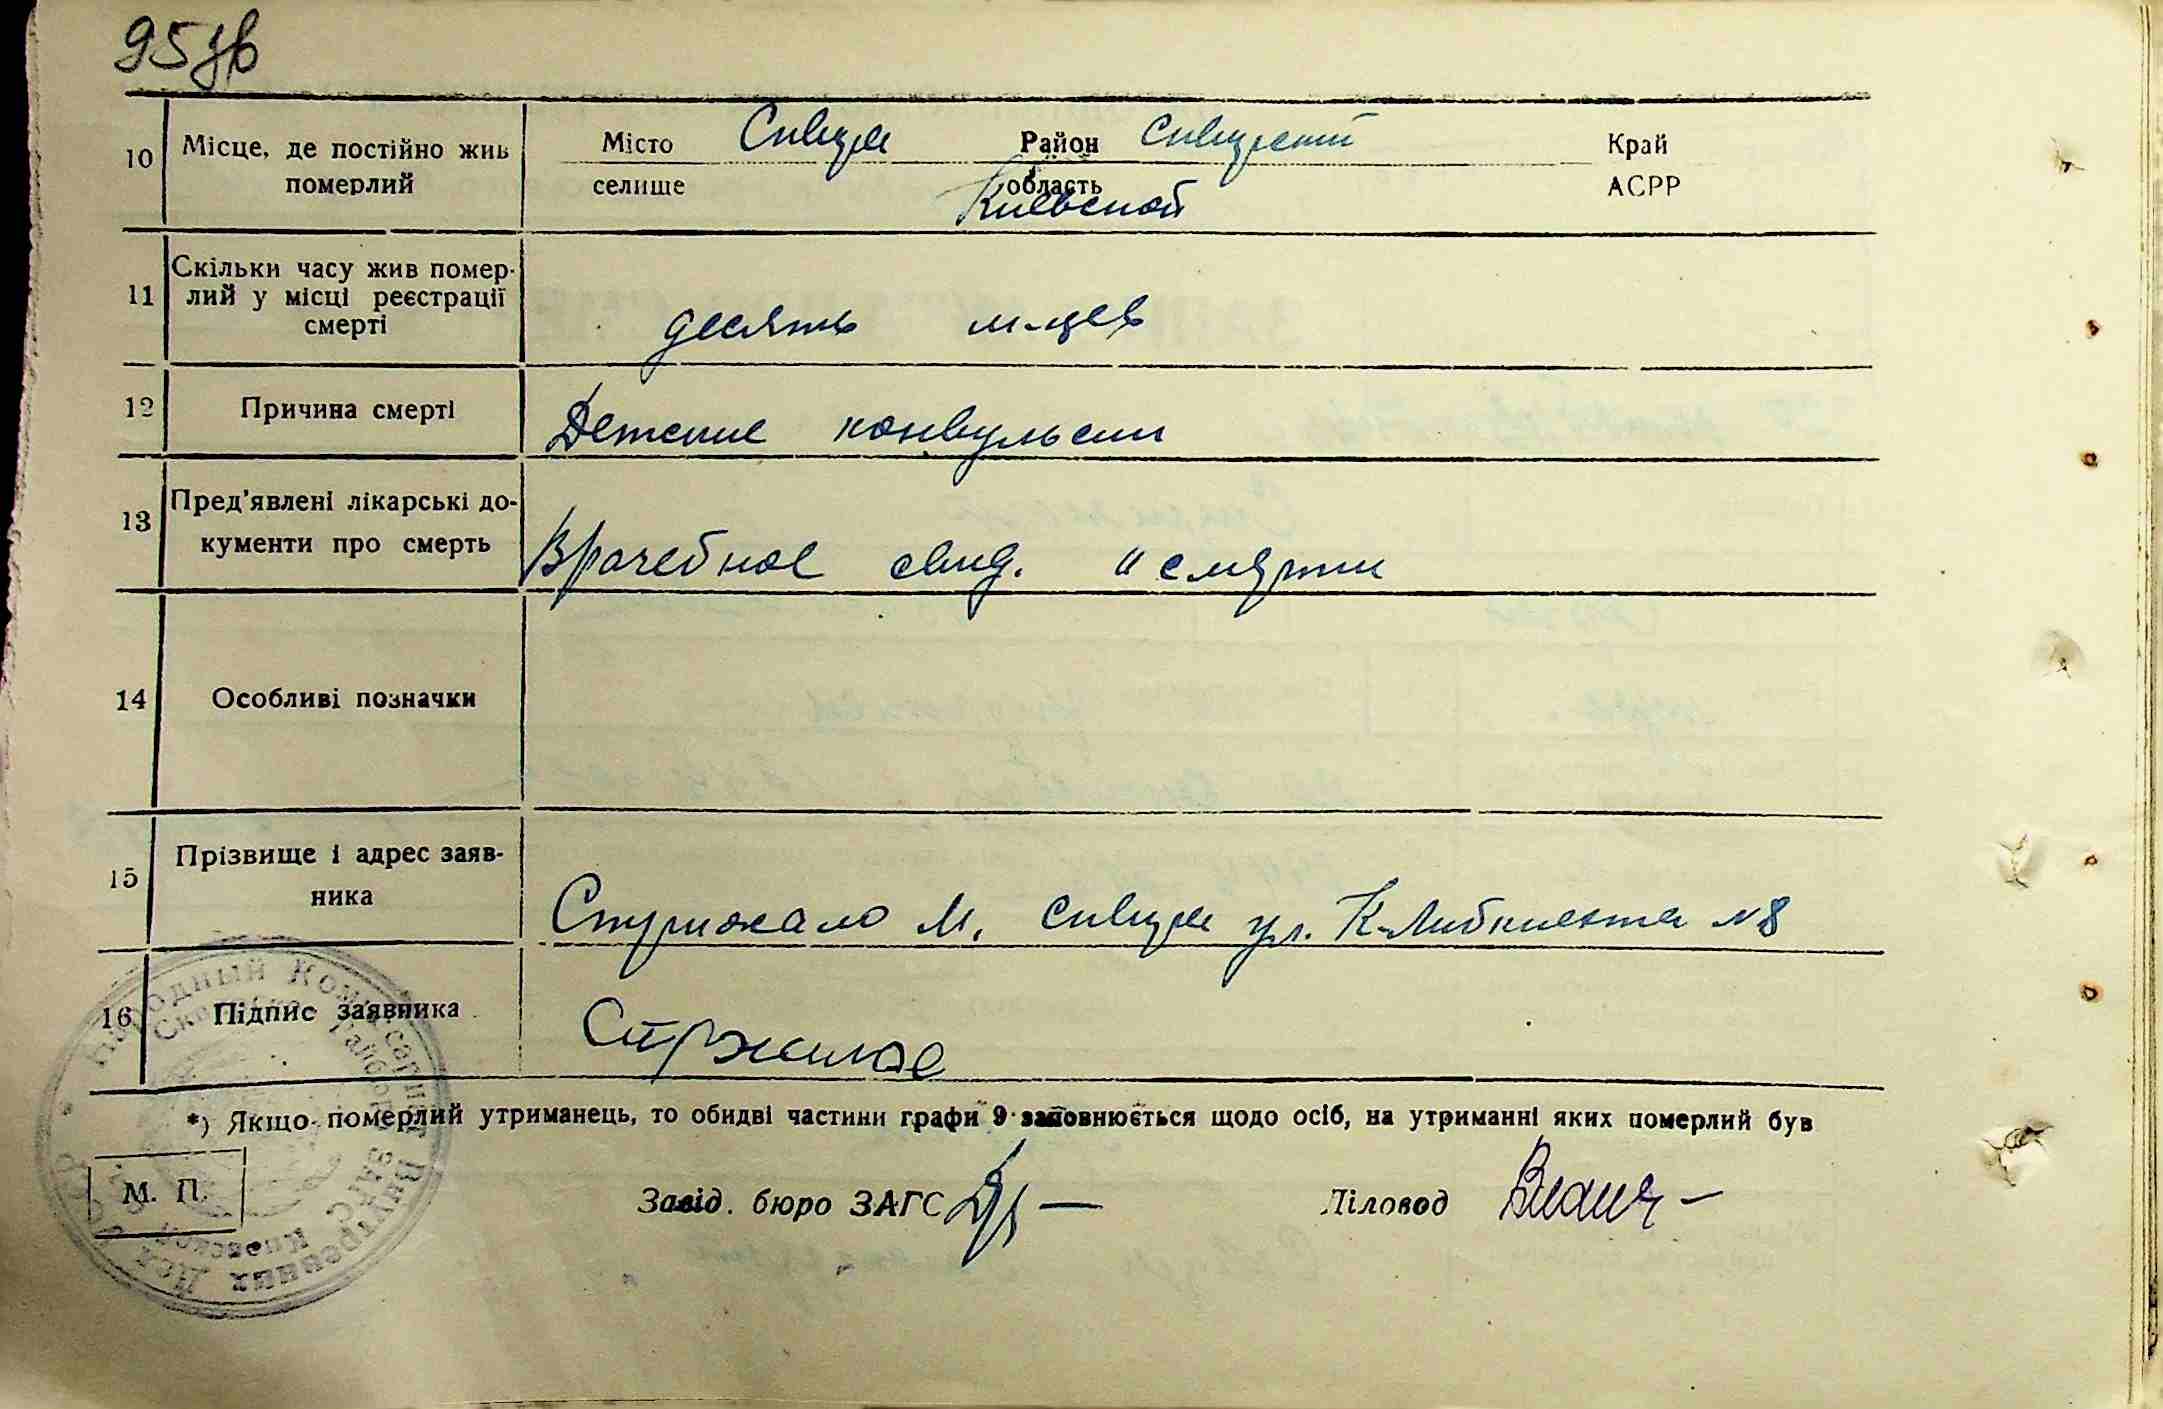 95 зв
10 Місце, де постійно жив Місто Сквира Район Сквирский Край
померлий селище область АСРР
Киевской
Скільки часу жив помер-
11 лий у місці реєстрації
смерті
десять м-цев
12 Причина смерті Детские конвульсии
Пред'явлені лікарські до-
13 кументи про смерть Врачебное свид. о смерти
14 Особливі позначки
15 Прізвище і адрес заяв-
ника Стрижало М. Сквира ул. К-Либкнехта №8
16 Підпис заявника
*) Якщо померлий утриманець, то обидві частини графи 9 заповнюється щодо осіб, на утриманні яких померлий був
М. П. Завід. бюро ЗАГС Діловод
Народный Комиссариат Внутренних Дел УССР